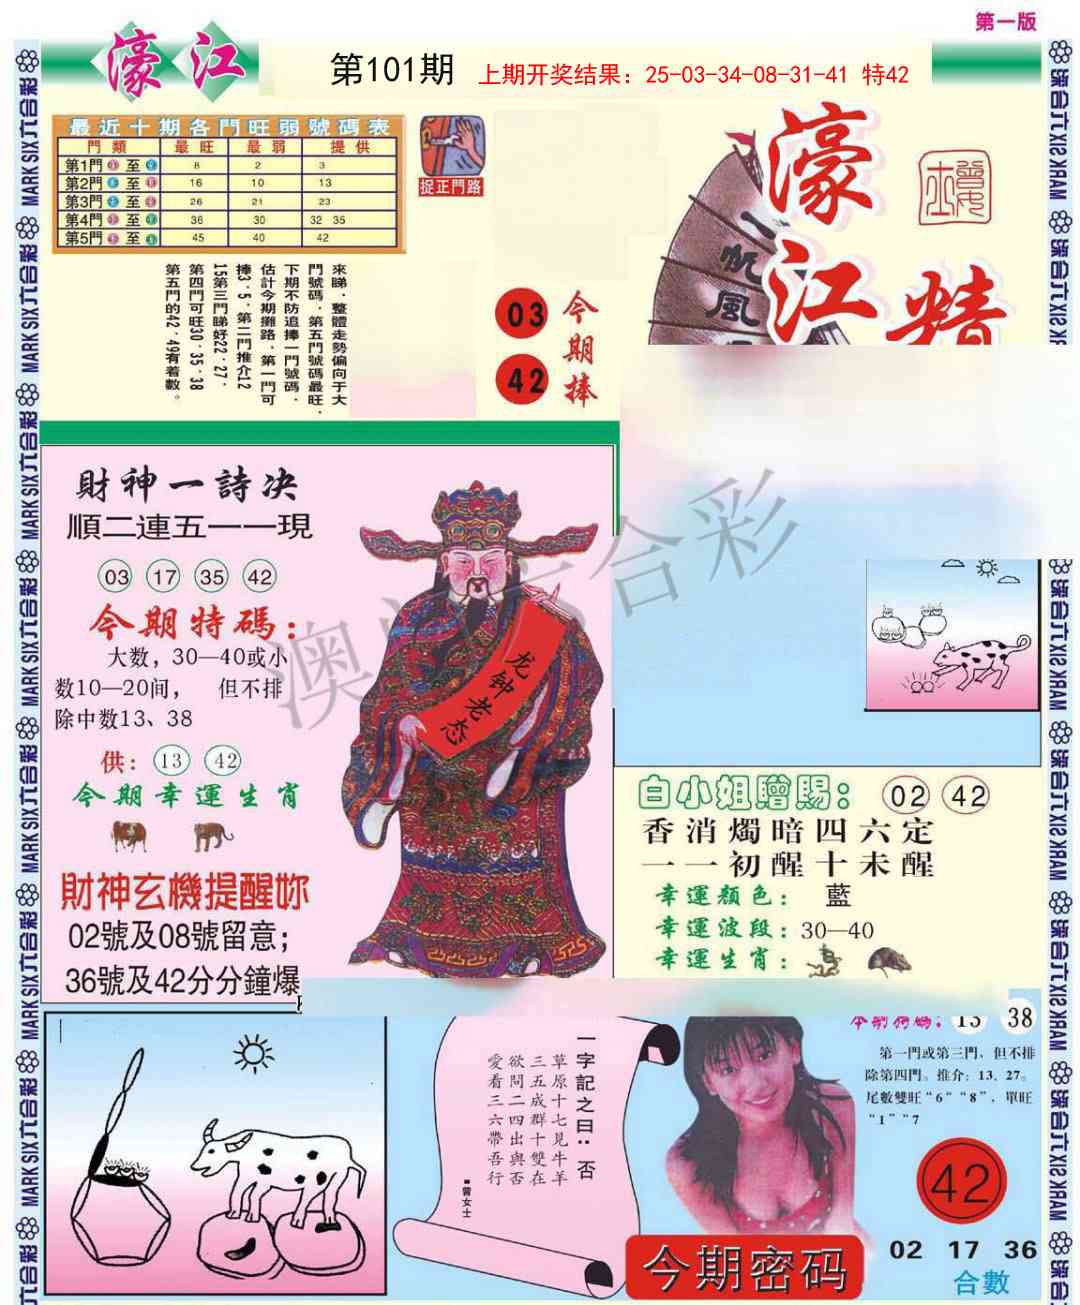 第一版
濠江
第101期
上期开奖结果：25-03-34-08-31-41 特42
最近十期各門旺弱號碼表
門類 最旺 最弱 提供
第1門 至 8 2 3
第2門 至 16 10 13
第3門 至 26 21 23
第4門 至 36 30 32 35
第5門 至 45 40 42
捉正門路
來睇．整體走勢偏向于大
門號碼．第五門號碼最旺．
下期不防追捧一門號碼．
估計今期攤路．第一門可
捧3．5．第二門推介12
15第三門睇好22．27．
第四門可旺30．35．38
第五門的42．49有着數。
03
42
今期捧
濠江精
一帆風
財神一詩决
順二連五一一現
03 17 35 42
今期特碼：
大数，30—40或小
数10—20间， 但不排
除中数13、38
供：13 42
今期幸運生肖
財神玄機提醒妳
02號及08號留意；
36號及42分分鐘爆
龙钟老态
白小姐贈賜：02 42
香消燭暗四六定
一一初醒十未醒
幸運顏色：藍
幸運波段：30—40
幸運生肖：
一字記之曰：否
草原十七見牛羊
三五成群十雙在
欲問二四出與否
愛看三六帶吾行
■曾女士
13 38
第一門或第三門、但不排
除第四門。推介：13、27。
尾數雙旺“6“ “8”、單旺
“1” “7
42
今期密码
02 17 36
合數
MARK SIX 六合彩
澳门六合彩